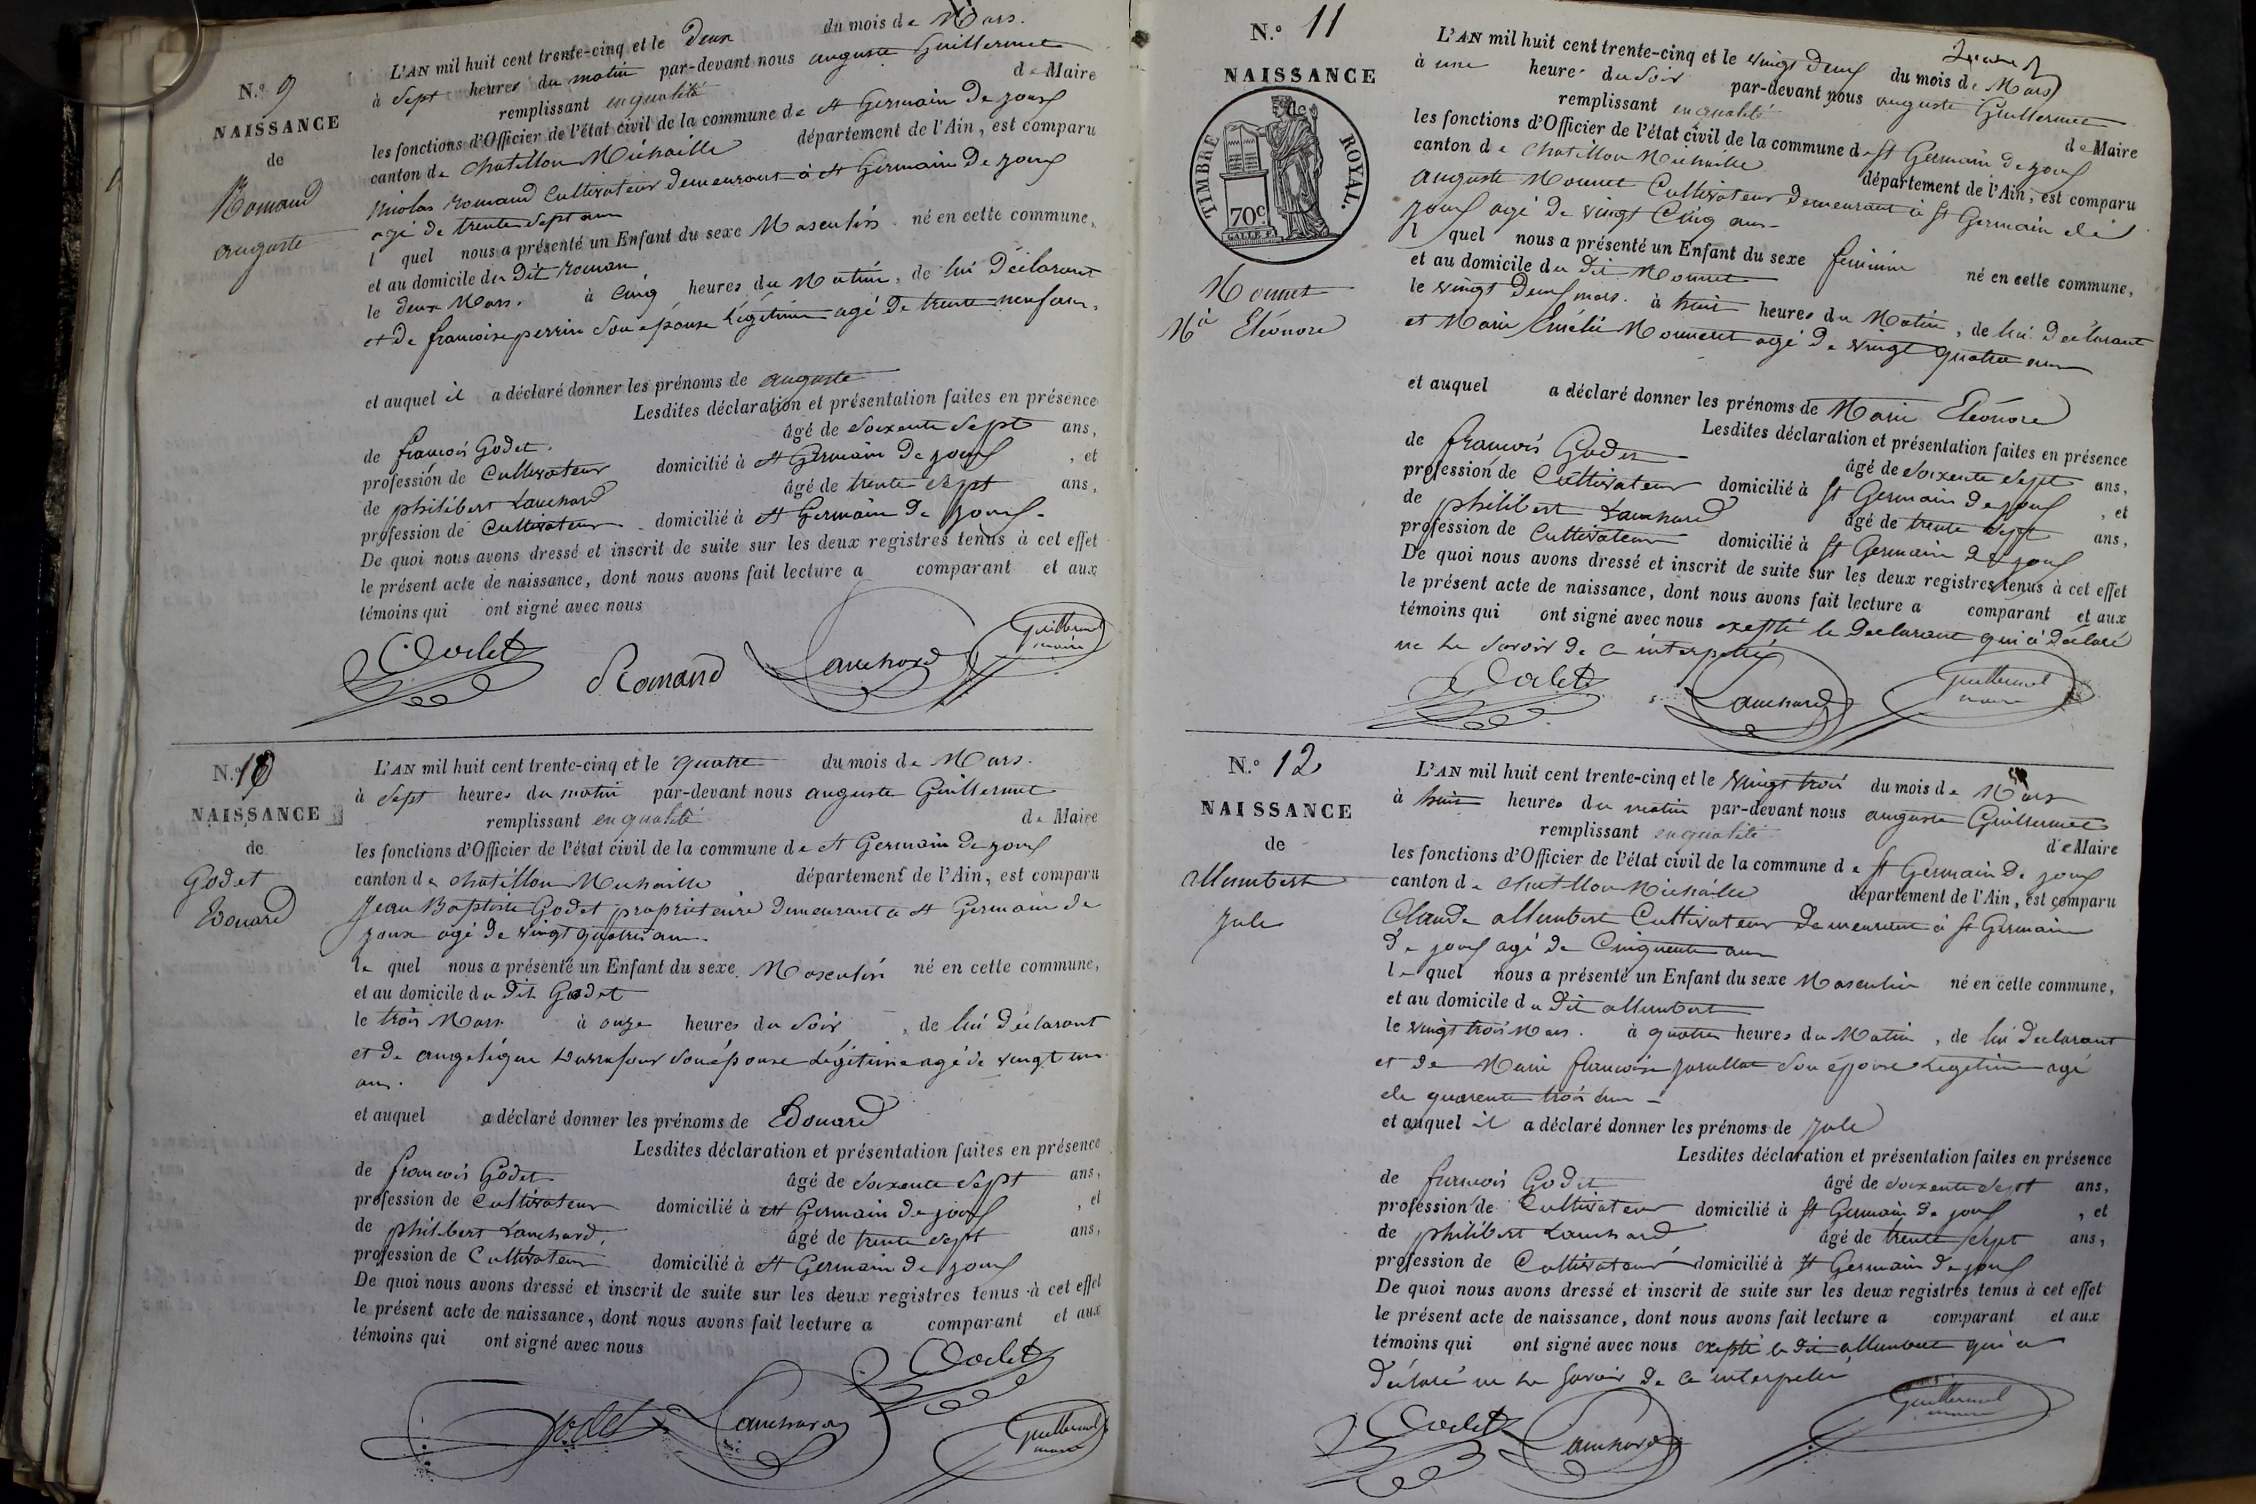 N.º 9
NAISSANCE
de
Romand
auguste
L'AN mil huit cent trente-cinq et le deux du mois de Mars.
à Sept heures du matin par-devant nous auguste Guillermet
remplissant en qualité de Maire
les fonctions d'Officier de l'état civil de la commune de St Germain De Joux
canton de Chatillon Michaille département de l'Ain, est comparu
Nicolas Romand Cultivateur demeurant à St Germain De Joux
agé de trente Sept ans
l quel nous a présenté un Enfant du sexe Masculin né en cette commune,
et au domicile du Dit Roman
le deux Mars. à Cinq heures du Matin, de lui Déclarant
et De francoise perrin Son épouse Légitime agé De trente neuf ans.
et auquel il a déclaré donner les prénoms de auguste
Lesdites déclaration et présentation faites en présence
de francois Godet. âgé de Soixente Sept ans,
profession de Cultivateur domicilié à St Germain De Joux, et
de philibert Lanchard âgé de trente Sept ans,
profession de Cultivateur domicilié à St Germain De Joux.
De quoi nous avons dressé et inscrit de suite sur les deux registres tenus à cet effet
le présent acte de naissance, dont nous avons fait lecture a comparant et aux
témoins qui ont signé avec nous
Godet Romand Lanchard Guillermet maire
N.º 10
NAISSANCE
de
Godet
Edouard
L'AN mil huit cent trente-cinq et le quatre du mois de Mars.
à Sept heures du matin par-devant nous auguste Guillermet
remplissant en qualité de Maire
les fonctions d'Officier de l'état civil de la commune de St Germain De Joux
canton de Chatillon Michaille département de l'Ain, est comparu
Jean Baptiste Godet propriétaire demeurant à St Germain de
Joux agé De vingt quatre ans.
le quel nous a présenté un Enfant du sexe Masculin né en cette commune,
et au domicile du Dit Godet
le trois Mars à onze heures du Soir, de lui Déclarant
et De angelique Son épouse Légitime agé de vingt un
ans.
et auquel a déclaré donner les prénoms de Edouard
Lesdites déclaration et présentation faites en présence
de francois Godet âgé de Soixente Sept ans,
profession de Cultivateur domicilié à St Germain De Joux, et
de philibert Lanchard, âgé de trente Sept ans,
profession de Cultivateur domicilié à St Germain De Joux
De quoi nous avons dressé et inscrit de suite sur les deux registres tenus à cet effet
le présent acte de naissance, dont nous avons fait lecture a comparant et aux
témoins qui ont signé avec nous
Godet
Godet Lanchard Guillermet maire
N.º 11
NAISSANCE
de
TIMBRE ROYAL.
70c.
Mounet
Mie Eléonore
L'AN mil huit cent trente-cinq et le vingt deux du mois de Mars
à une heure du Soir par-devant nous auguste Guillermet
remplissant en qualité de Maire
les fonctions d'Officier de l'état civil de la commune de St Germain De Joux
canton de Chatillon Michaille département de l'Ain, est comparu
auguste Mounet Cultivateur Demeurant à St Germain de
Joux agé De vingt Cinq ans
l quel nous a présenté un Enfant du sexe féminin né en cette commune,
et au domicile du Dit Mounet
le vingt Deux mars. à huit heures du Matin, de lui Déclarant
et Marie Emélie Mounet agé De vingt quatre ans
et auquel a déclaré donner les prénoms de Marie Eléonore
Lesdites déclaration et présentation faites en présence
de francois Godet âgé de Soixente Sept ans,
profession de Cultivateur domicilié à St Germain De Joux, et
de philibert Lanchard âgé de trente Sept ans,
profession de Cultivateur domicilié à St Germain De Joux
De quoi nous avons dressé et inscrit de suite sur les deux registres tenus à cet effet
le présent acte de naissance, dont nous avons fait lecture a comparant et aux
témoins qui ont signé avec nous excepté le Declarant qui à Déclaré
ne le Savoir De ce interpellé
Godet Lanchard Guillermet maire
N.º 12
NAISSANCE
de
allumbert
Jule
L'AN mil huit cent trente-cinq et le vingt trois du mois de Mars
à huit heures du matin par-devant nous auguste Guillermet
remplissant en qualité de Maire
les fonctions d'Officier de l'état civil de la commune de St Germain De Joux
canton de Chatillon Michaille département de l'Ain, est comparu
Claude allumbert Cultivateur Demeurant à St Germain
De Joux agé De Cinquente ans
le quel nous a présenté un Enfant du sexe Masculin né en cette commune,
et au domicile du Dit allumbert
le vingt trois Mars. à quatre heures du Matin, de lui Déclarant
et De Marie francoise Son épouse Legitime agé
de quarente trois ans
et auquel il a déclaré donner les prénoms de Jule
Lesdites déclaration et présentation faites en présence
de francois Godet âgé de Soixente Sept ans,
profession de Cultivateur domicilié à St Germain De Joux, et
de philibert Lanchard âgé de trente Sept ans,
profession de Cultivateur domicilié à St Germain De Joux
De quoi nous avons dressé et inscrit de suite sur les deux registres tenus à cet effet
le présent acte de naissance, dont nous avons fait lecture a comparant et aux
témoins qui ont signé avec nous excepté le Dit allumbert qui a
Déclaré ne le Savoir De ce interpellé
Godet Lanchard Guillermet maire